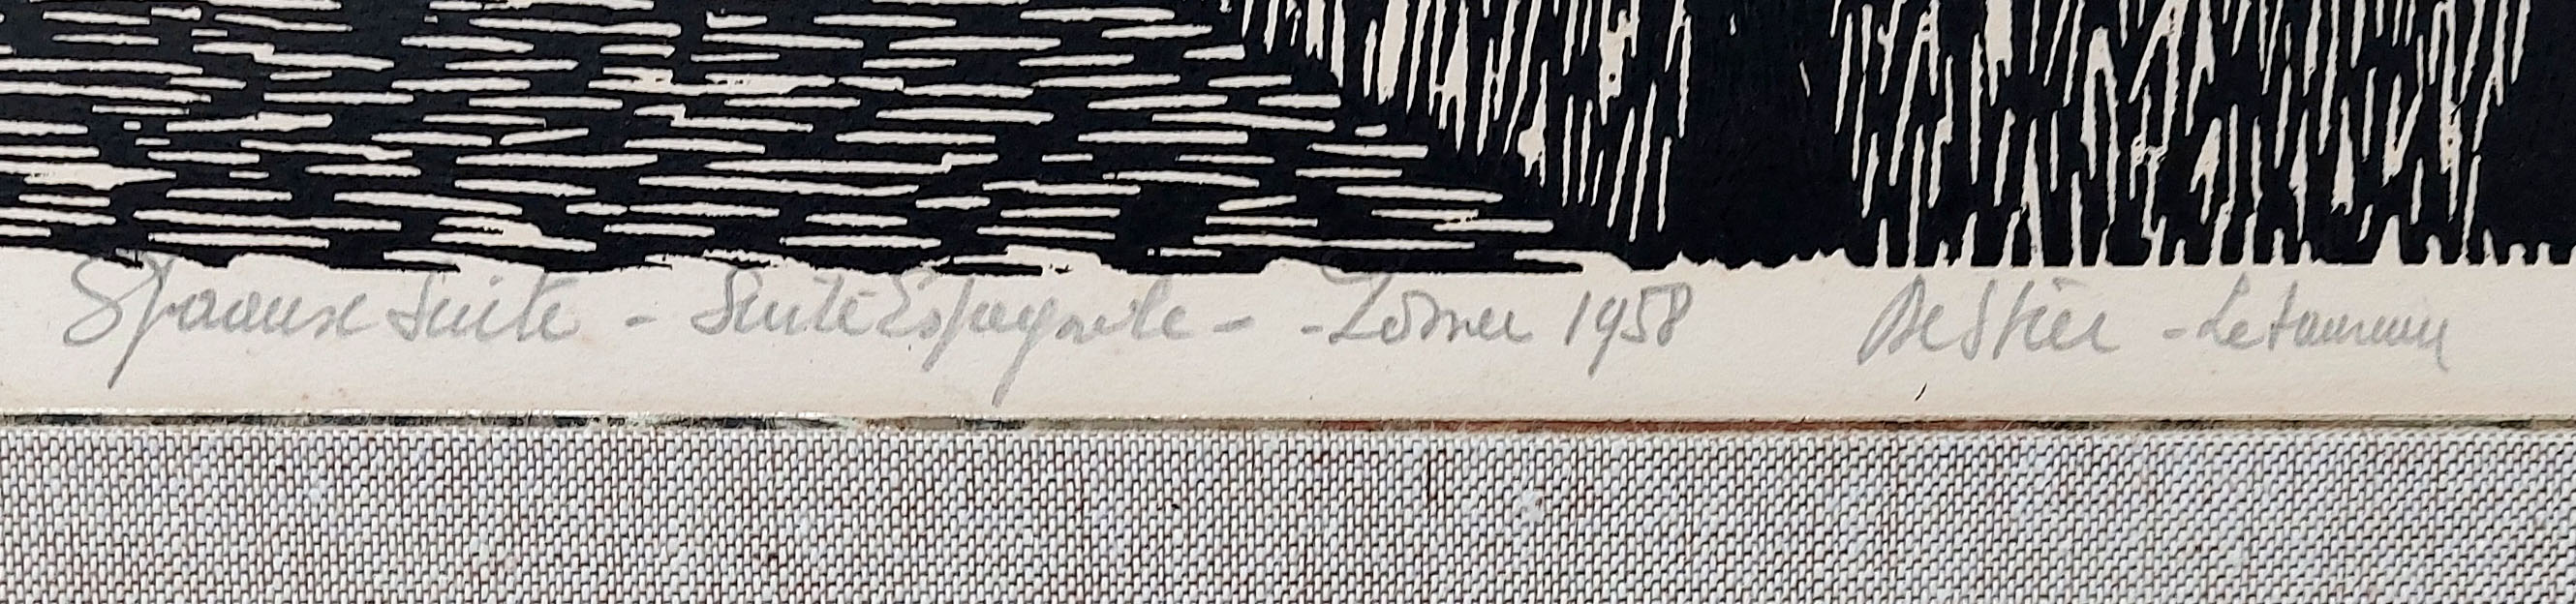 Spaanse Suite - Suite Espagnole - - Zomer 1958 De Stier - Le taureau